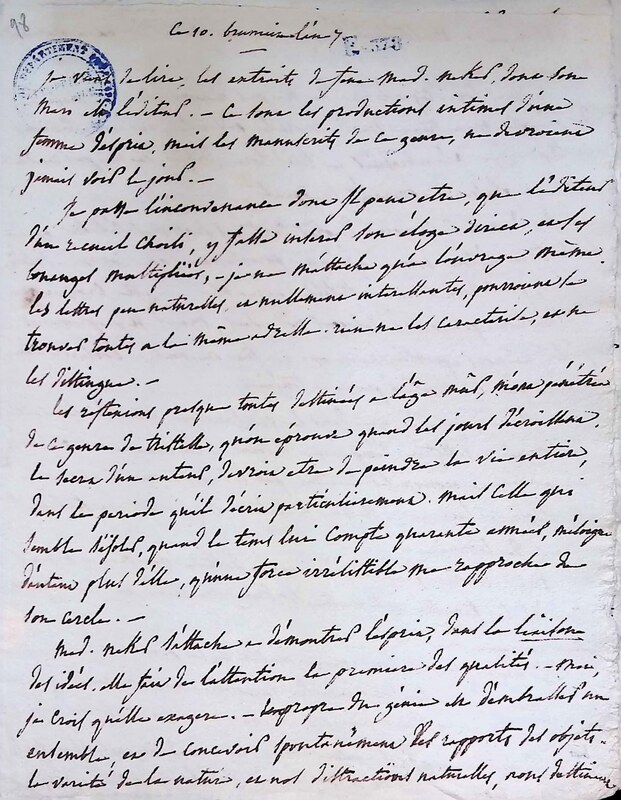 98
ce 10. brumaire l'an 7
373
DEPARTEMENT
je viens de lire, les extraits de feue mad. neker, dont son
mari est l'éditeur. — ce sont les productions intimes d'une
femme d'esprit, mais les manuscrits de ce genre, ne devroient
jamais voir le jour. —
je passe l'inconvenance dont il peut etre, que l'éditeur
d'un recueil choisi, y fasse inserer son éloge direct, et ses
louanges multipliées, — je ne m'attache qu'a l'ouvrage même.
les lettres peu naturelles, et nullement interessantes, pourroient se
trouver toutes a la même adresse. rien ne les caracterise, et ne
les distingue. —
les réflexions presque toutes destinées a l'âge mûr, m'ont pénétrée
de ce genre de tristesse, qu'on éprouve quand les jours décroissent.
le secret d'un auteur, devroit etre de peindre la vie entiere,
dans la periode qu'il décrit particulierement. mais celle qui
semble désoler, quand le tems lui compte quarante années, m'éloigne
d'autant plus d'elle, qu'une force irrésistible me rapproche de
son cercle. —
mad. neker s'attache a démontrer l'esprit, dans la liaison
des idées. elle fait de l'attention la premiere des qualités. — moi,
je crois qu'elle exagere. — le propre du génie est d'embrasser un
ensemble, et de concevoir spontanément des rapports des objets.
la varieté de la nature, et nos distractions naturelles, nous destinent